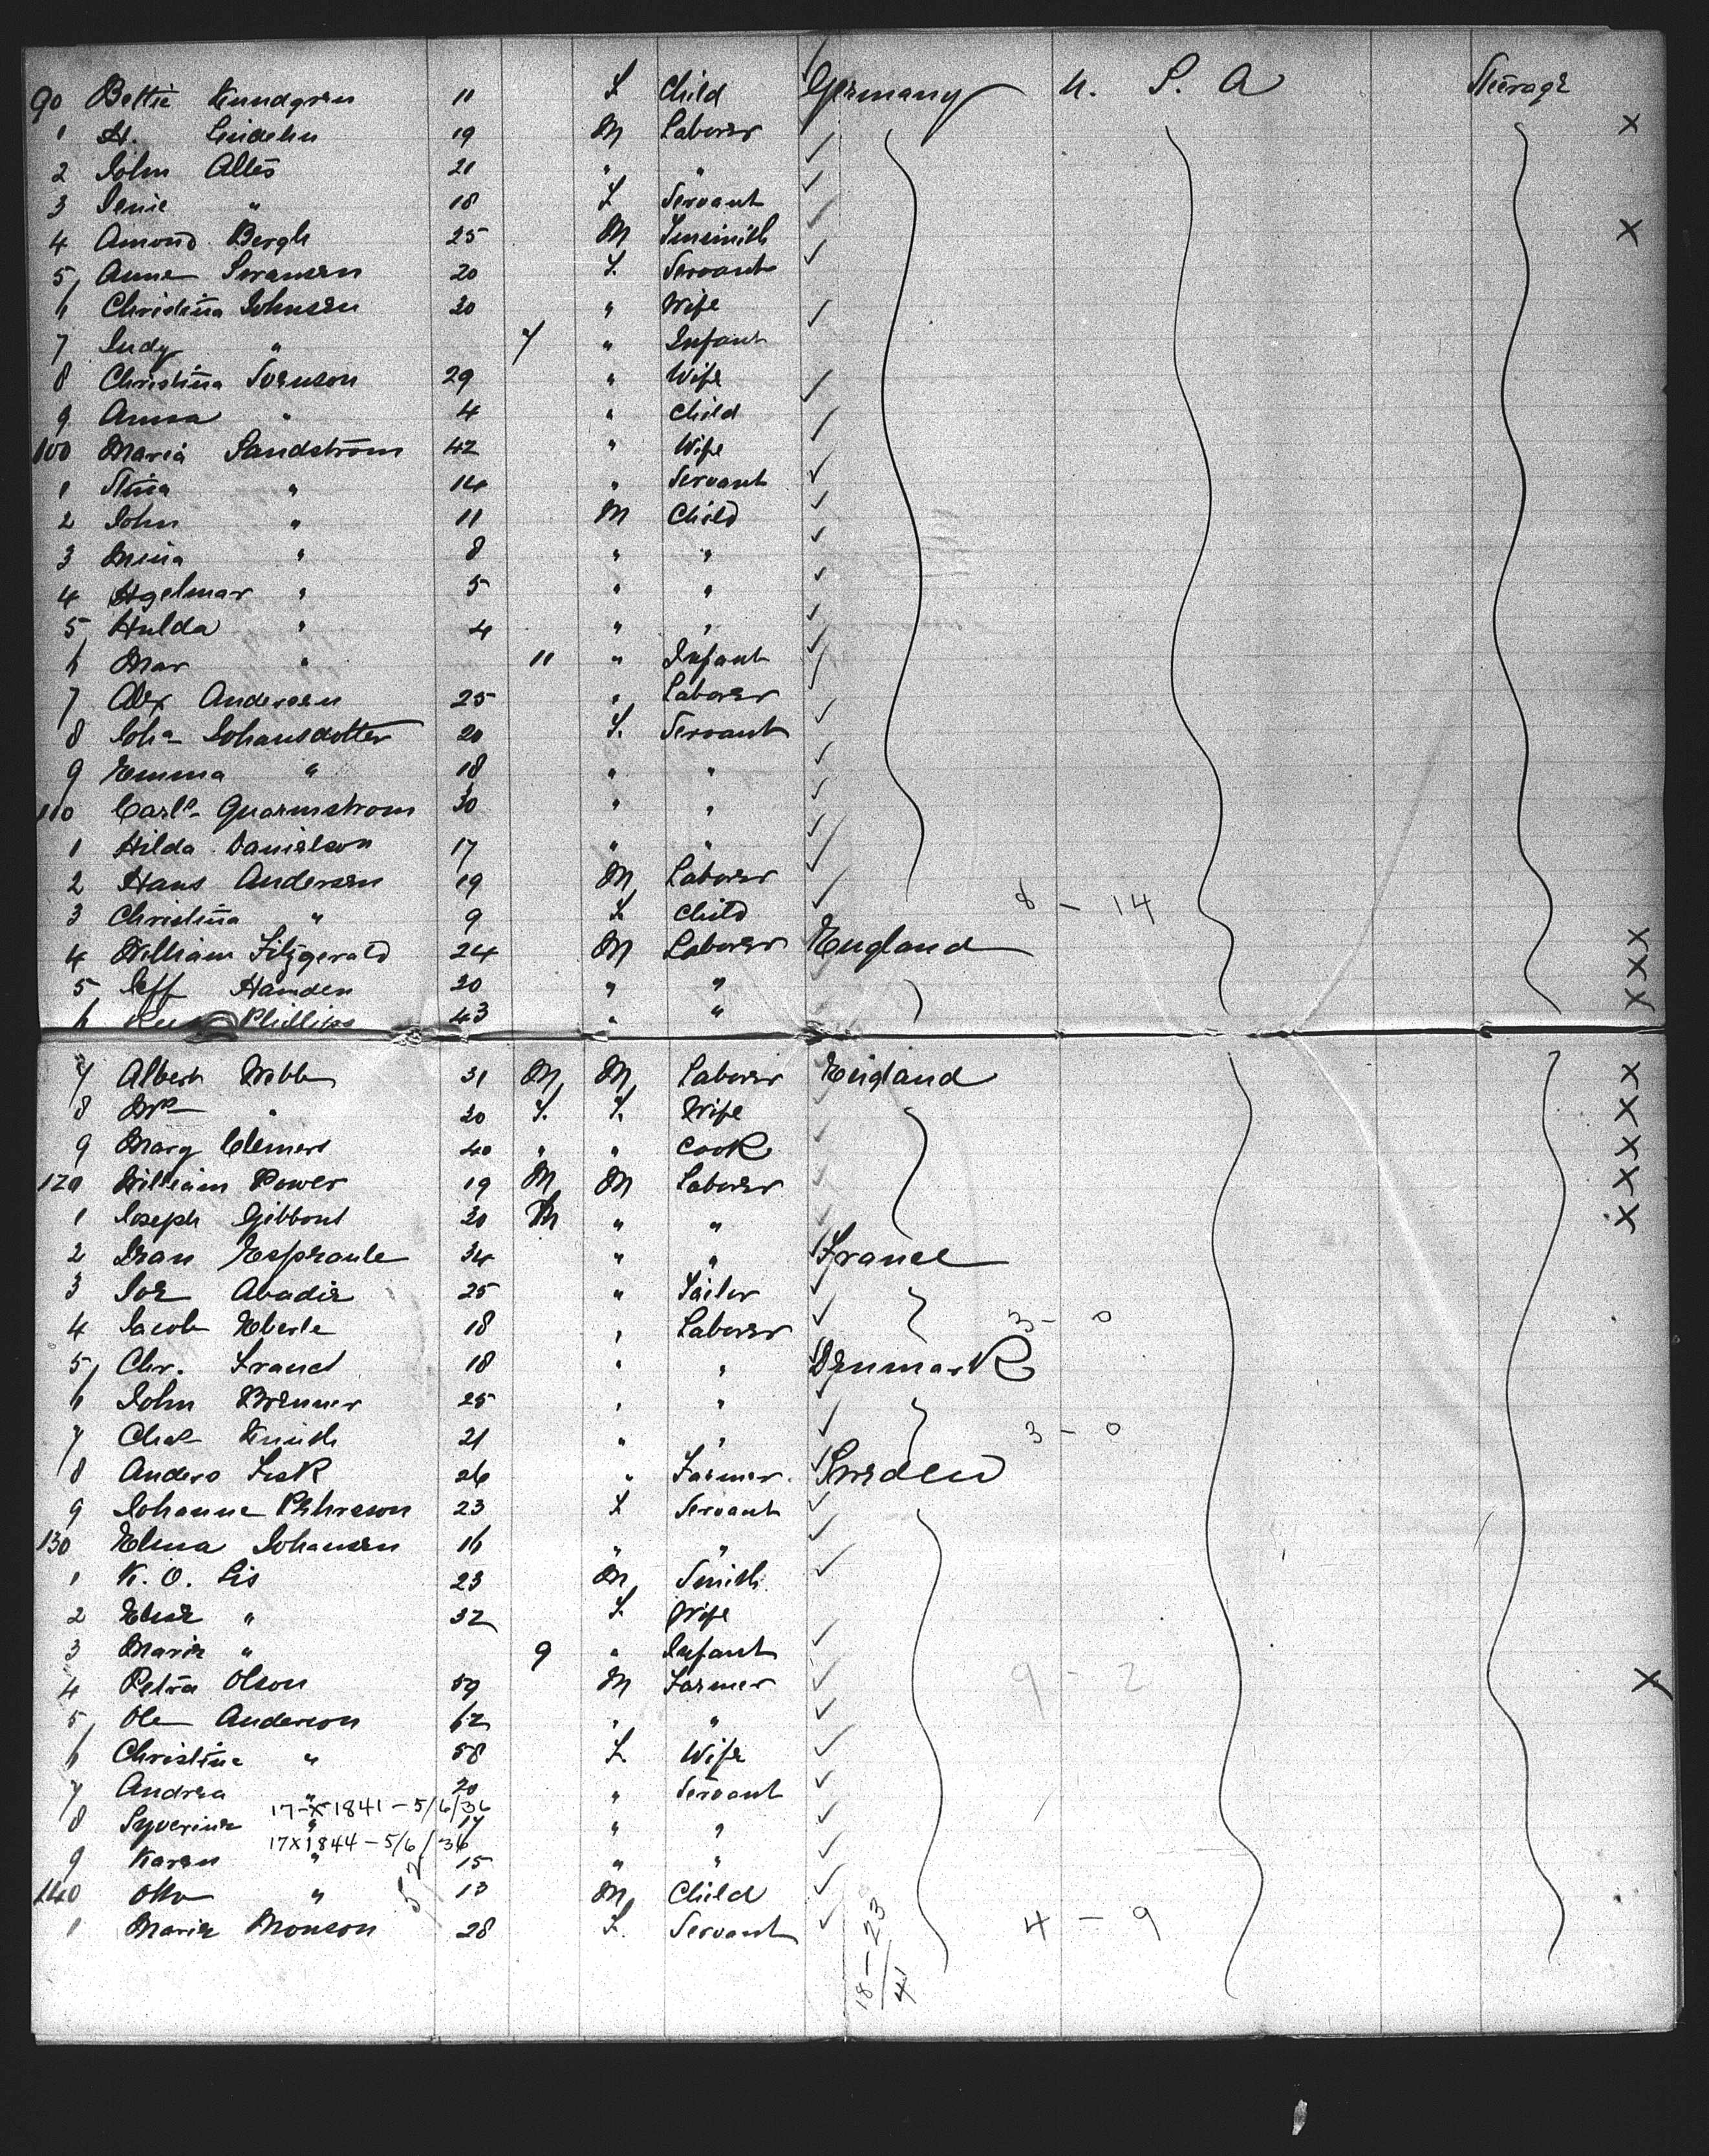 90 Bettie Kundgren 11 F. Child Germany U. S. A Steerage
1 H. Lindehn 19 M Laborer X
2 John Alles 21 " "
3 Jenie " 18 F Servant
4 Amond Bergh 25 M X
5, Anna Soransen 20 F. Servant
6 Christina Johnsen 20 " Wife
7 Judy " 7 " Infant
8 Christina Svenson 29 " Wife
9 Anna " 4 " Child
100 Maria Sandström 42 " Wife
1 Stina " 14 " Servant
2 John " 11 M Child
3 Mina " 8 " "
4 Hgelmar " 5 " "
5, Hulda " 4 " "
6 Mar " 11 " Infant
7 Alex Andersen 25 " Laborer
8 Joha Johansdotter 20 F. Servant
9 Emma " 18 " "
110 Carle Quarmstrom 30 " "
1 Hilda Danielson 17 " "
2 Hans Andersen 19 M Laborer
3 Christina " 9 F. Child 8 - 14
4 William Fitzgerald 24 M Laborer England X
5 Jeff Handen 20 " " X
6 Phillips 43 " " X
7 Albert Webb 31 M M Laborer England X
8 Mrs " 20 F. F. Wife X
9 Mary Clemens 40 " " Cook X
120 William Power 19 M M Laborer X
1 Joseph Gibbons 20 M " " X
2 Jean Esproule 34 " " France
3 Joe Abadie 25 " Sailor
4 Jacob Eberle 18 " Laborer 3 - 0
5, Chr. Frand 18 " " Denmark
6 John Brenner 25 " "
7 Chas Knuth 21 " " 3 - 0
8 Anders Fisk 26 " Farmer. Sweden
9 Johanne Pehrson 23 F Servant
130 Elina Johansen 16 " "
1 K. O. Lis 23 M Smith
2 Elise " 32 F. Wife
3 Marie " 9 " Infant
4 Petra Olson 59 M Farmer 9 - 2 X
5, Ole Anderson 62 " "
6 Christina " 58 F. Wife
7 Andrea " 20 " Servant
17-X 1841 - 5/6/36
8 Syverine " 17 " "
17X1844 - 5/6/36
9 Karen " 15 " "
52
140 Otto " 13 M Child
1 Marie Monson 28 F. Servant 4 - 9
18 - 23
41